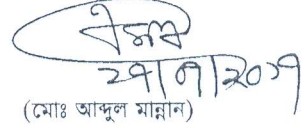 ২৭/৭/২০১৭
(মোঃ আব্দুল মান্নান)